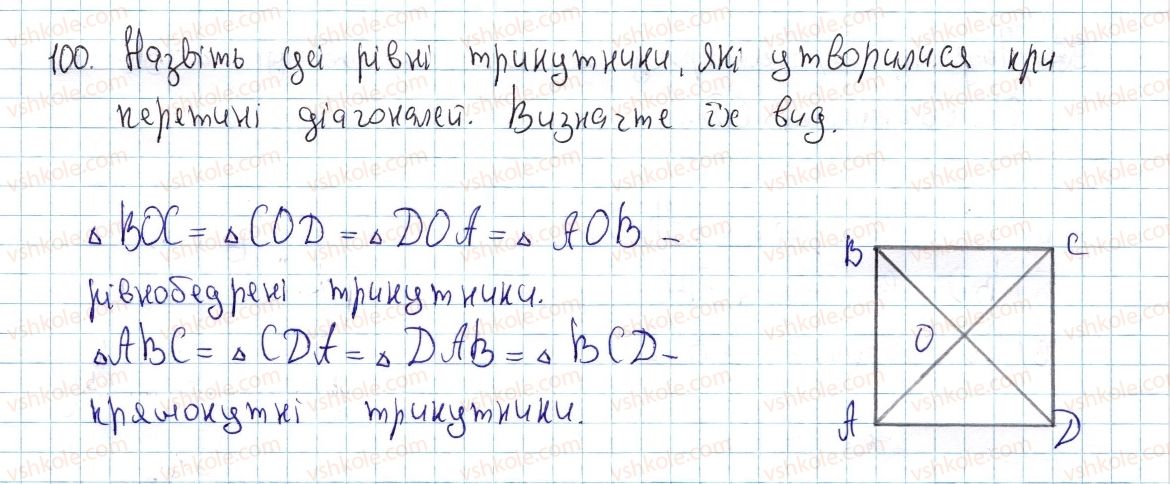 100. Назвіть усі рівні трикутники, які утворилися при
перетині діагоналей. Визначте їх вид.
△ BOC = △ COD = △ DOA = △ AOB –
рівнобедрені трикутники.
△ ABC = △ CDA = △ DAB = △ BCD –
прямокутні трикутники.
B C
O
A D